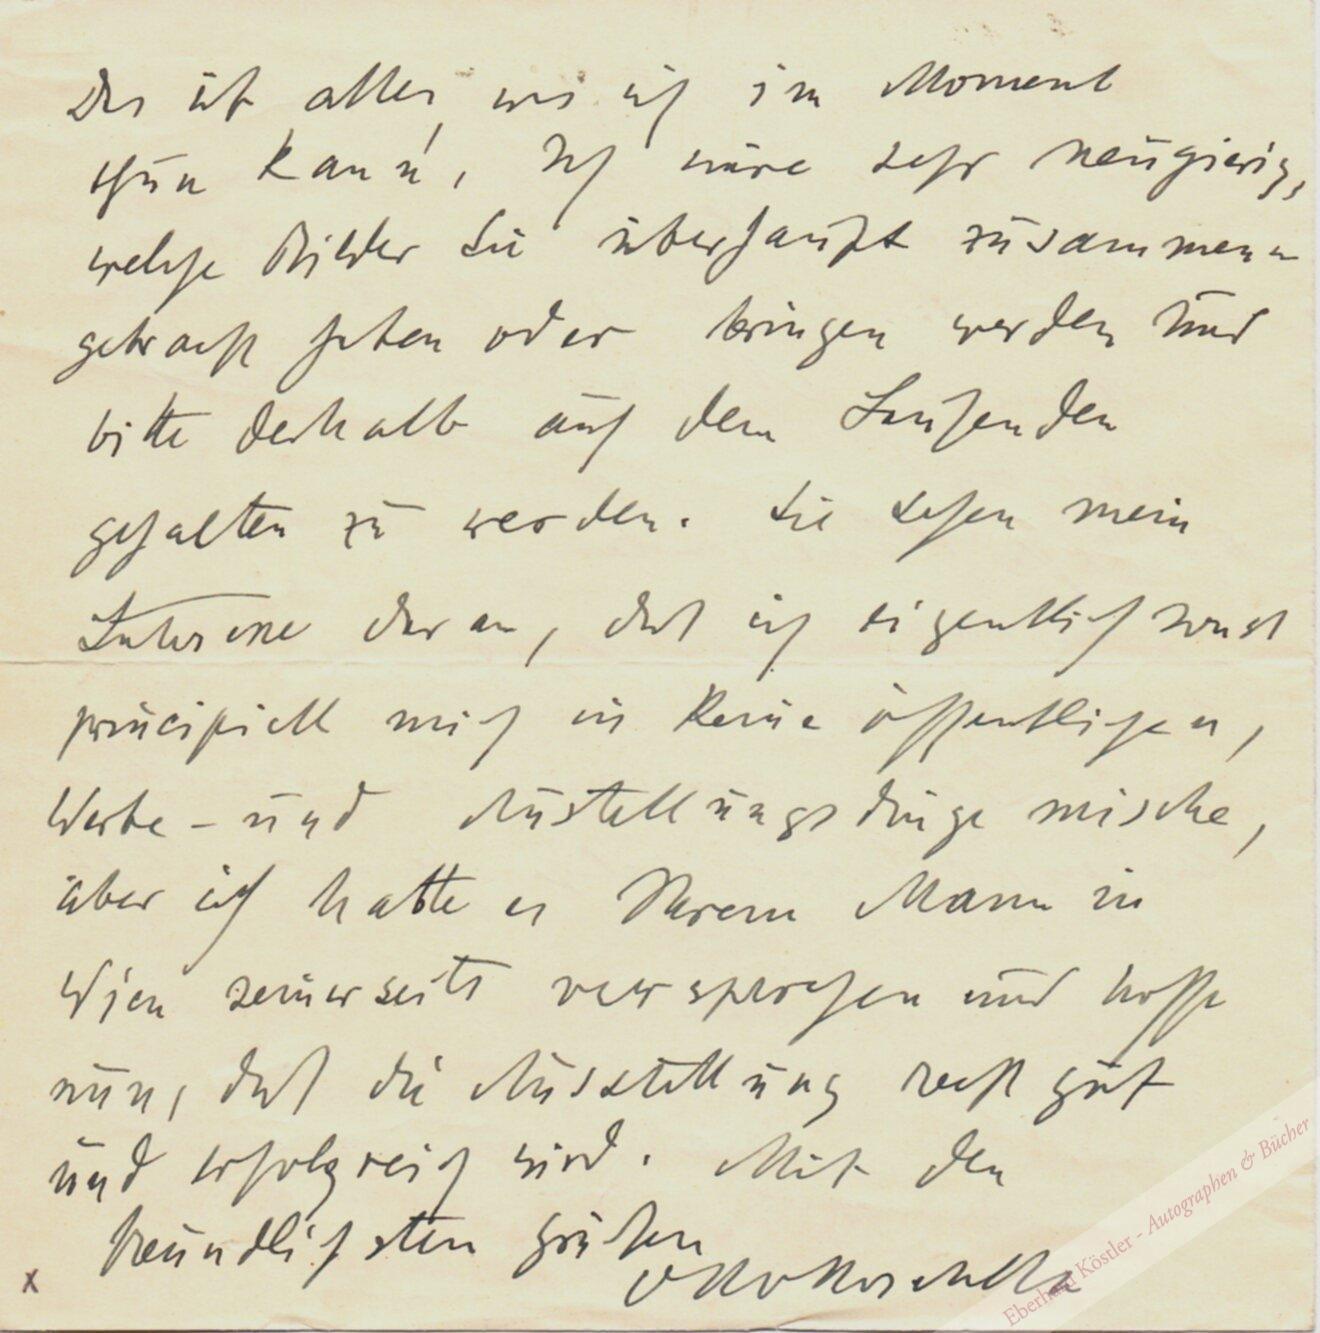 Das ist alles, was ich im Moment
thun kann, Ich wäre sehr neugierig,
welche Bilder Sie überhaupt zusammen
gebracht haben oder bringen werden und
bitte deshalb auf dem Laufenden
gehalten zu werden. Sie sehen mein
Interesse daran, daß ich eigentlich sonst
principiell mich in keine öffentlichen,
Werbe- und Austellungsdinge mische,
aber ich hatte es Ihrem Mann in
Wien seinerseits versprochen und hoffe
nun, daß die Ausstellung recht gut
und erfolgreich wird. Mit den
freundlichsten Grüßen
x
Eberhard Köstler - Autographen & Bücher